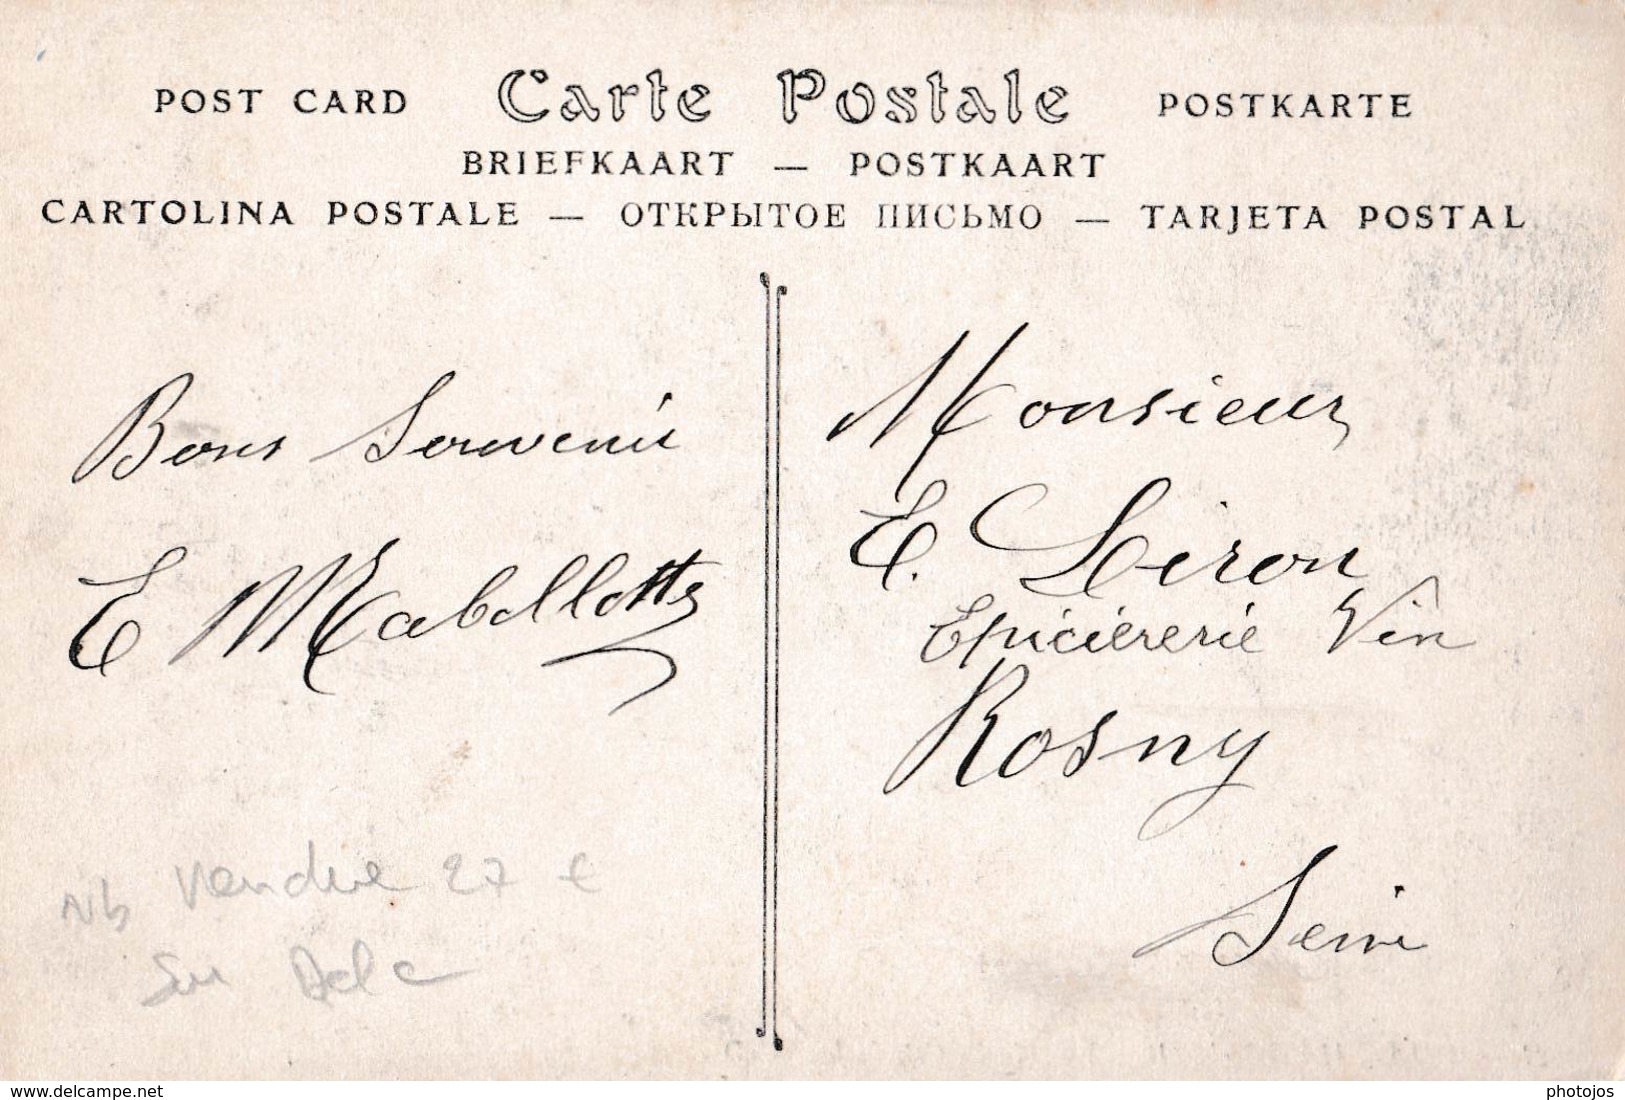 POST CARD Carte Postale POSTKARTE
BRIEFKAART — POSTKAART
CARTOLINA POSTALE — ОТКРЫТОЕ ПИСЬМО — TARJETA POSTAL
Bons Souvenir
E
Monsieur
E. Liron
Epiciérerie Vin
Rosny
Seine
vendue 27 €
sur Delc
www.delcampe.net
photojos